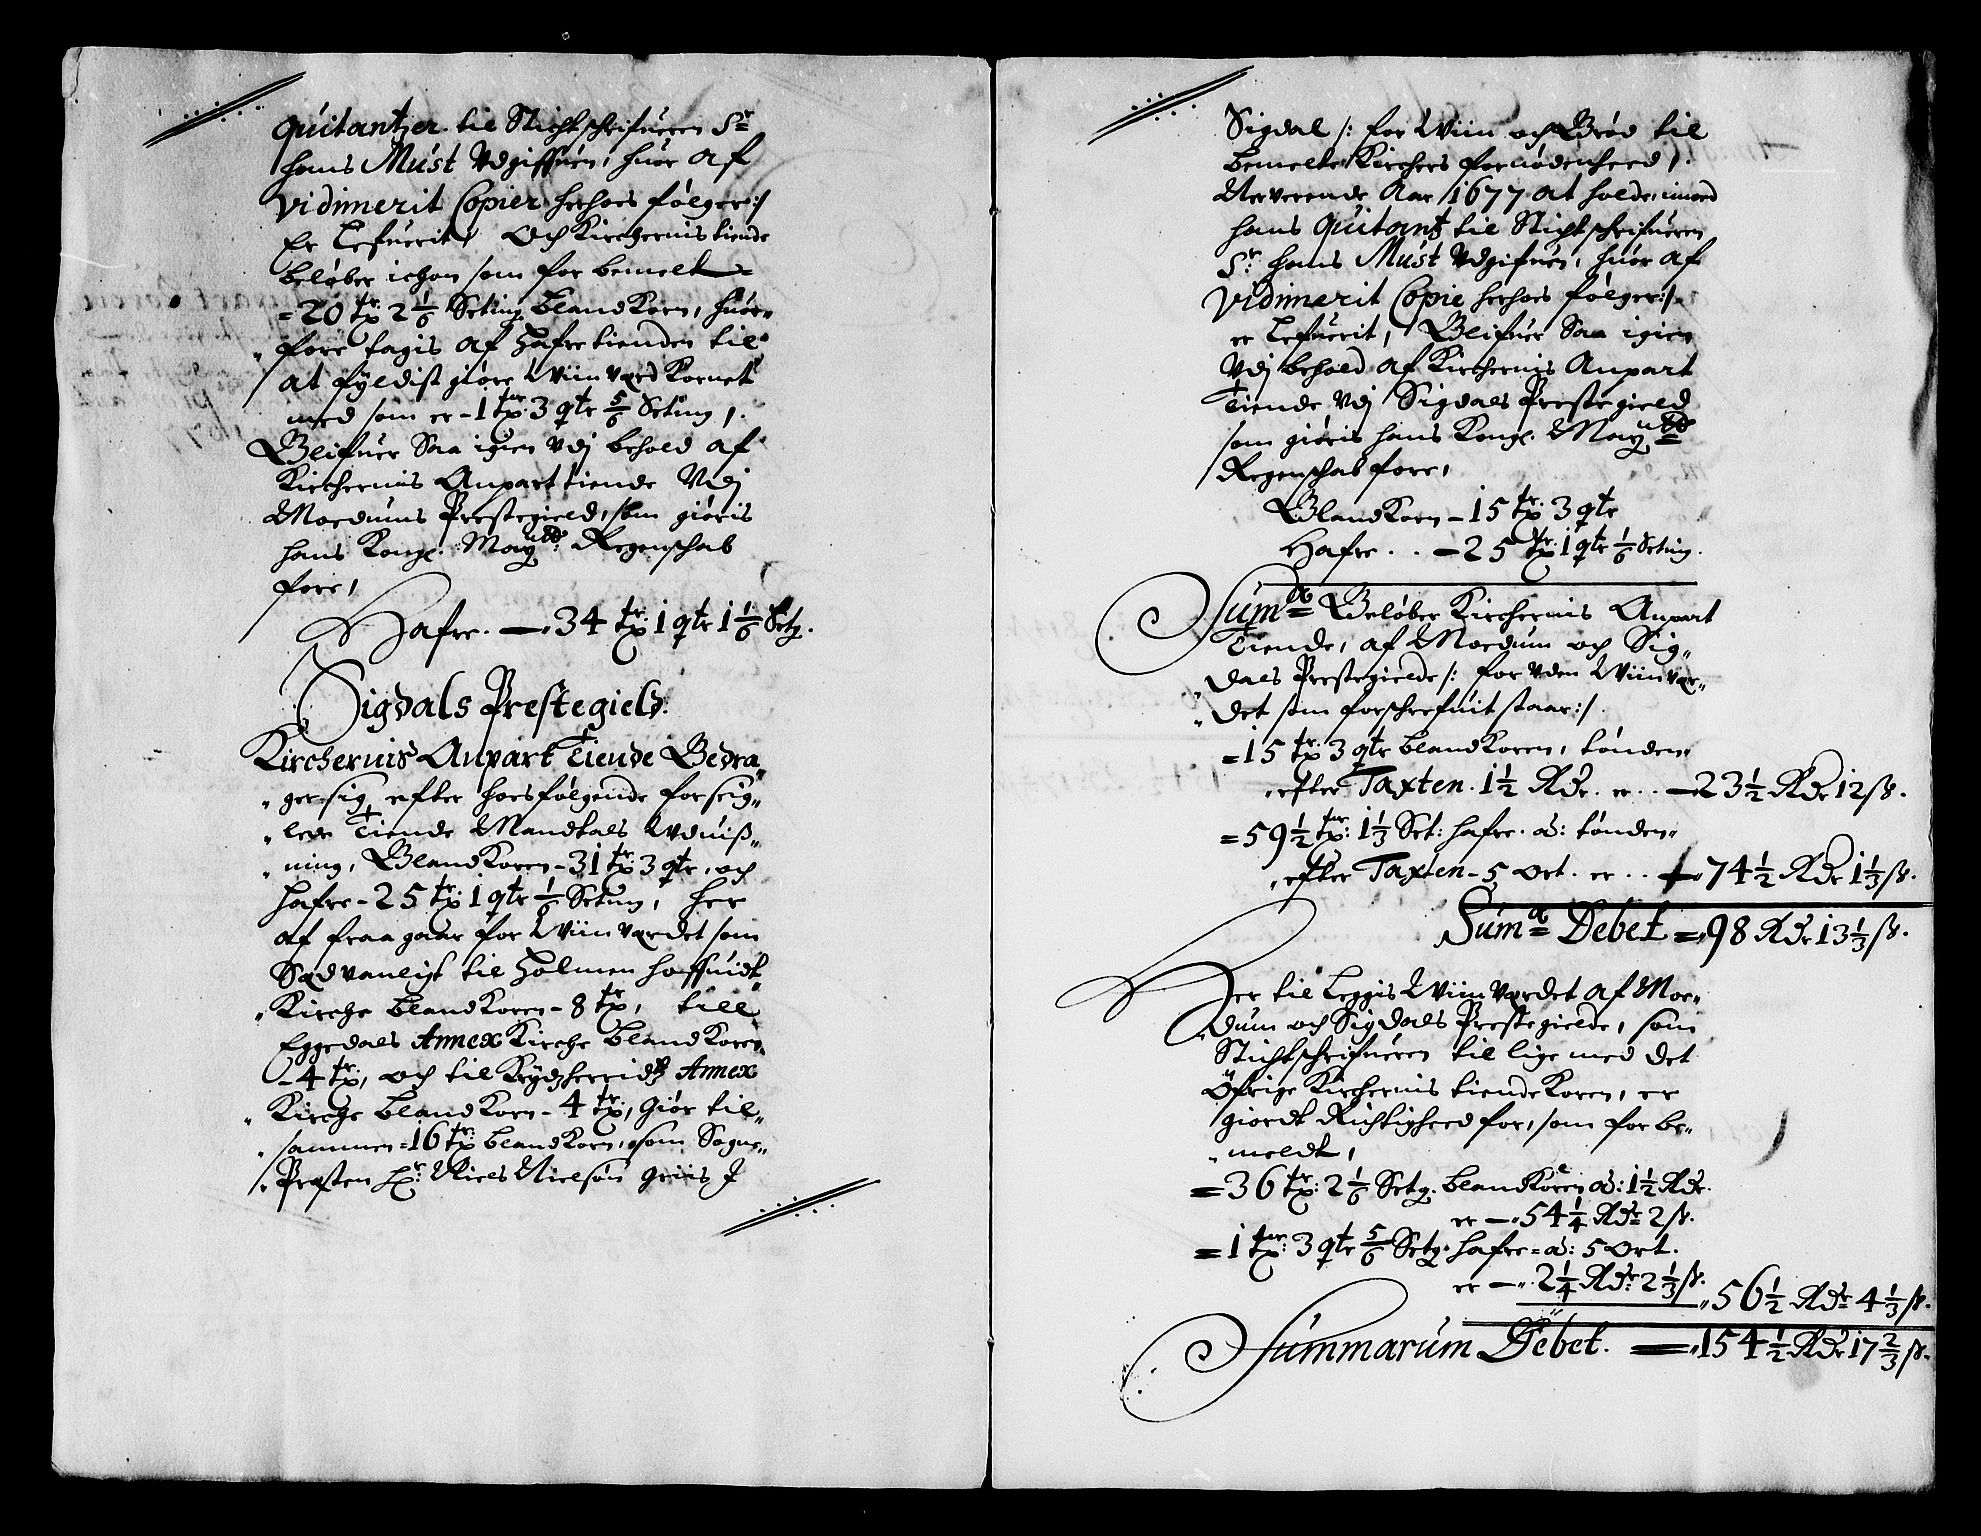 Quitantzer til Stichtschrifueren Sr
hans Must Udgiffuen, huor af
Vidimerit Copier herhoes følger:/
Er Lefuerit, Och Kirchernis tiende
beløber ichon som for bemelt
=20 tr 2 1/6 Seting blandKorn, huor„
„ fore tagis af Hafre tienden til
at fyldist giøre Wiin værd Kornet
med som er - 1 tr 3 qtr 5/6 Seting,
Blifuer Saa igien Vdj behold af
Kirchernis Anpart tiende Vdj
Moedums Prestegield, som giøris
hans Kongl. Mayts Regenschab
fore,
Hafre. — 34 tr 1 qtr 1 1/6 Setg.
Sigdals Prestegield.
Kirchernis Anpart Tiende Bedra„
„ ger sig efter hoesfølgende forseig„
„ lede Tiende Mandtals Udviiß„
„ ning, BlandKoren - 31 tr 3 qtr, och
hafre - 25 tr 1 qtr 1/6 Seting, her
af fraa gaar for Wiin værdet som
Sædvanligt til Holmen hoffuidt
„ Kirche blandKoren - 8 tr, till
Eggedals Annex Kirche blandKoren
- 4 tr, och til Krydzherridtz Annex
„ Kirche blandKorn - 4 tr, Giør til„
„ sammen = 16 tr blandKorn, som Sogne„
„ Præsten Hr: Niels Nielsøn Griis J
Sigdal /: for Wiin och Brød til
bemelte Kirchers fornødenheed /.
Nerverende Aar 1677 at holde, imod
hans Quitantz til Stichtschrifueren
Sr: hans Must Vdgifuen, huor af
Vidimerit Copie herhoes følger:/
er Lefuerit, Blifuer Saa igien
Vdj behold af Kirchernis Anpart
Tiende Vdj Sigdals Prestegield
som giøris hans Kongl. Mayts
Regenschab fore,
BlandKorn - 15 tr 3 qtr
Hafre . . — 25 tr 1 qtr 1/6 Seting.
Suma Beløber Kirchernis Anpart
Tiende, af Moedum och Sig„
dals Prestegielde /: for uden Wiinvær„
„ det som forschrefuit staar:/.
= 15 tr 3 qtr blandKoren, tønden„
„ efter Taxten. 1 1/2 Rdr. er . . — 23 1/2 Rdr 12 ß.
= 59 1/2 tr: 1 1/3 Set: hafre. â: tønden„
„ efter Taxten - 5 Ort. er . . — 74 1/2 Rdr 1 1/3 ß.
Suma Debet = 98 Rdr 13 1/3 ß.
Her til Leggis Wiin værdet af Moe„
dum och Sigdals Prestegielde, som
Stichtschrifueren til lige med det
Öfrige Kirchernis tiende Koren, er
giordt Richtigheed for, som for be„
„ meldt,
= 36 tr: 2 1/6 Setg. blandKoren â: 1 1/2 Rdr.
er — 54 1/4 Rdr 2 ß.
= 1 tr: 3 qtr 5/6 Setg. hafre = â: 5 Ort.
er — 2 1/4 Rdr 2 1/3 ß. „ 56 1/2 Rdr 4 1/3 ß.
Summarum Debet. = 154 1/2 Rdr 17 2/3 ß.